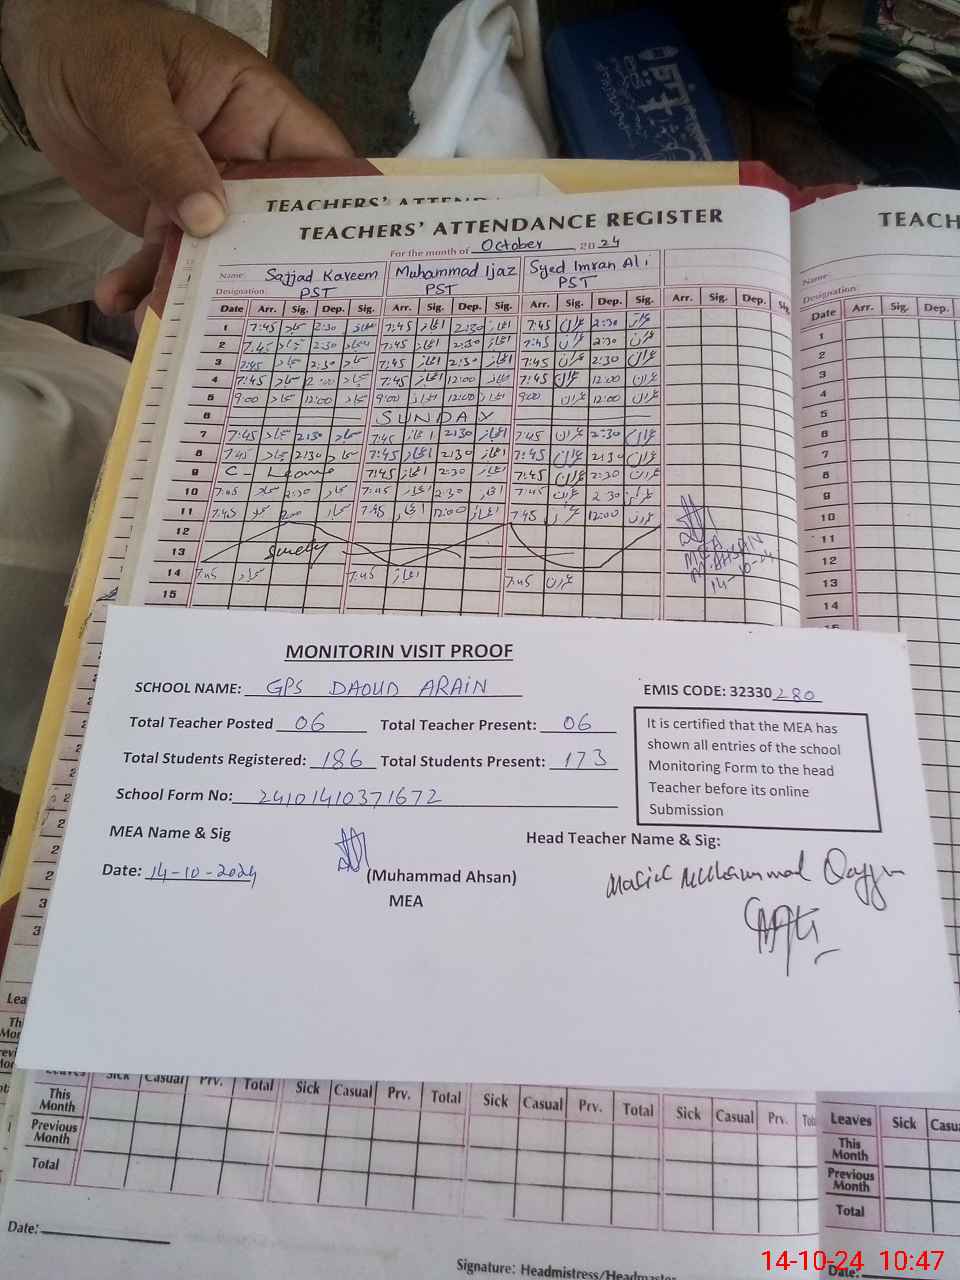 TEACHERS' ATTEN
TEACHERS' ATTENDANCE REGISTER
For the month of October 2024
Name: Sajjad Kareem Muhammad Ijaz Syed Imran Ali
Designation: PST PST PST
Date Arr. Sig. Dep. Sig. Arr. Sig. Dep. Sig. Arr. Sig. Dep. Sig. Arr. Sig. Dep. Sig.
1 7:45 سجاد 2:30 سجاد 7:45 اعجاز 2:30 اعجاز 7:45 عمران 2:30 عمران
2 7:45 سجاد 2:30 سجاد 7:45 اعجاز 2:30 اعجاز 7:45 عمران 2:30 عمران
3 7:45 سجاد 2:30 سجاد 7:45 اعجاز 2:30 اعجاز 7:45 عمران 2:30 عمران
4 7:45 سجاد سجاد 7:45 اعجاز 12:00 اعجاز 7:45 عمران 12:00 عمران
5 9:00 سجاد 12:00 سجاد 9:00 اعجاز 12:00 اعجاز 9:00 عمران 12:00 عمران
6 SUNDAY
7 7:45 سجاد 2:30 سجاد 7:45 اعجاز 2:30 اعجاز 7:45 عمران 2:30 عمران
8 7:45 سجاد 2:30 سجاد 7:45 اعجاز 2:30 اعجاز 7:45 عمران 2:30 عمران
9 C- Leave 7:45 اعجاز 2:30 اعجاز 7:45 عمران 2:30 عمران
10 7:45 سجاد 2:30 سجاد 7:45 اعجاز 2:30 اعجاز 7:45 عمران 2:30 عمران
11 7:45 سجاد سجاد 7:45 اعجاز 12:00 اعجاز 7:45 عمران 12:00 عمران
12
13
14 7:45 سجاد 7:45 اعجاز 7:45 عمران
15
MEA
M. AHSAN
14-10-24
TEACH
Name:
Designation:
Date Arr. Sig. Dep.
1
2
3
4
5
6
7
8
9
10
11
12
13
14
MONITORIN VISIT PROOF
SCHOOL NAME: GPS DAOUD ARAIN
EMIS CODE: 32330280
Total Teacher Posted 06 Total Teacher Present: 06
Total Students Registered: 186 Total Students Present: 173
School Form No: 24101410371672
It is certified that the MEA has
shown all entries of the school
Monitoring Form to the head
Teacher before its online
Submission
MEA Name & Sig
Head Teacher Name & Sig:
Date: 14-10-2024
(Muhammad Ahsan)
MEA
Muhammad Qayyum
Leaves Sick Casual Prv. Total Sick Casual Prv. Total Sick Casual Prv. Total Sick Casual Prv.
This Month
Previous Month
Total
Leaves Sick Casu
This Month
Previous Month
Total
Date:
Signature: Headmistress/Headmaste
Date:
14-10-24 10:47